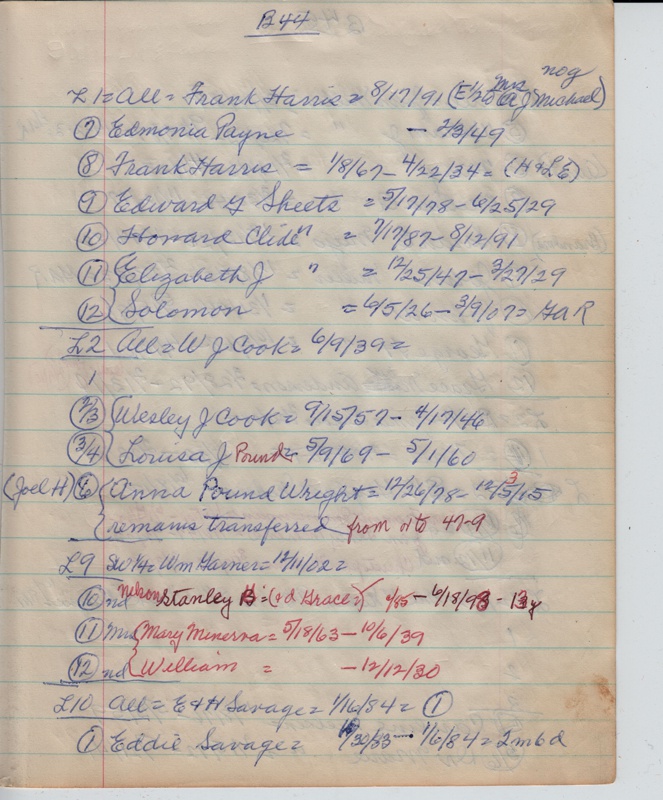 B44
nog
L1 = All = Frank Harris = 8/17/91 (E 1/2 to Mrs A J Michael)
(7) Edmonia Payne - 2/3/49
(8) Frank Harris = 1/8/67 - 4/22/34 = (H of L E)
(9) Edward G Sheets = 5/17/78 - 6/25/29
(10) Howard Clide " = 7/17/87 - 8/12/91
(11) { Elizabeth J " = 12/25/47 - 3/27/29
(12) { Solomon = 6/5/26 - 3/9/07 = GAR
L2 All = W J Cook = 6/9/39 =
1
(2/3) { Wesley J Cook = 9/15/57 - 4/17/46
(3/4) { Louisa J Pound = 5/9/69 - 5/1/60
(Joel H) (6) { Anna Pound Wright = 12/26/78 - 12/ /15
{ remains transferred from & to 47-9
L9 SW 1/4 = Wm Garner = 12/11/02 =
(10) nd Nelson Stanley = (+ d Grace =) /85 - 6/18/98 - 13y
(11) Mrs { Mary Minerva = 5/18/63 - 10/6/39
(12) nd { William = - 12/12/30
L10 All = E & H Savage = 1/16/84 = (1)
(1) Eddie Savage = /30/83 - 1/6/84 = 2m6d